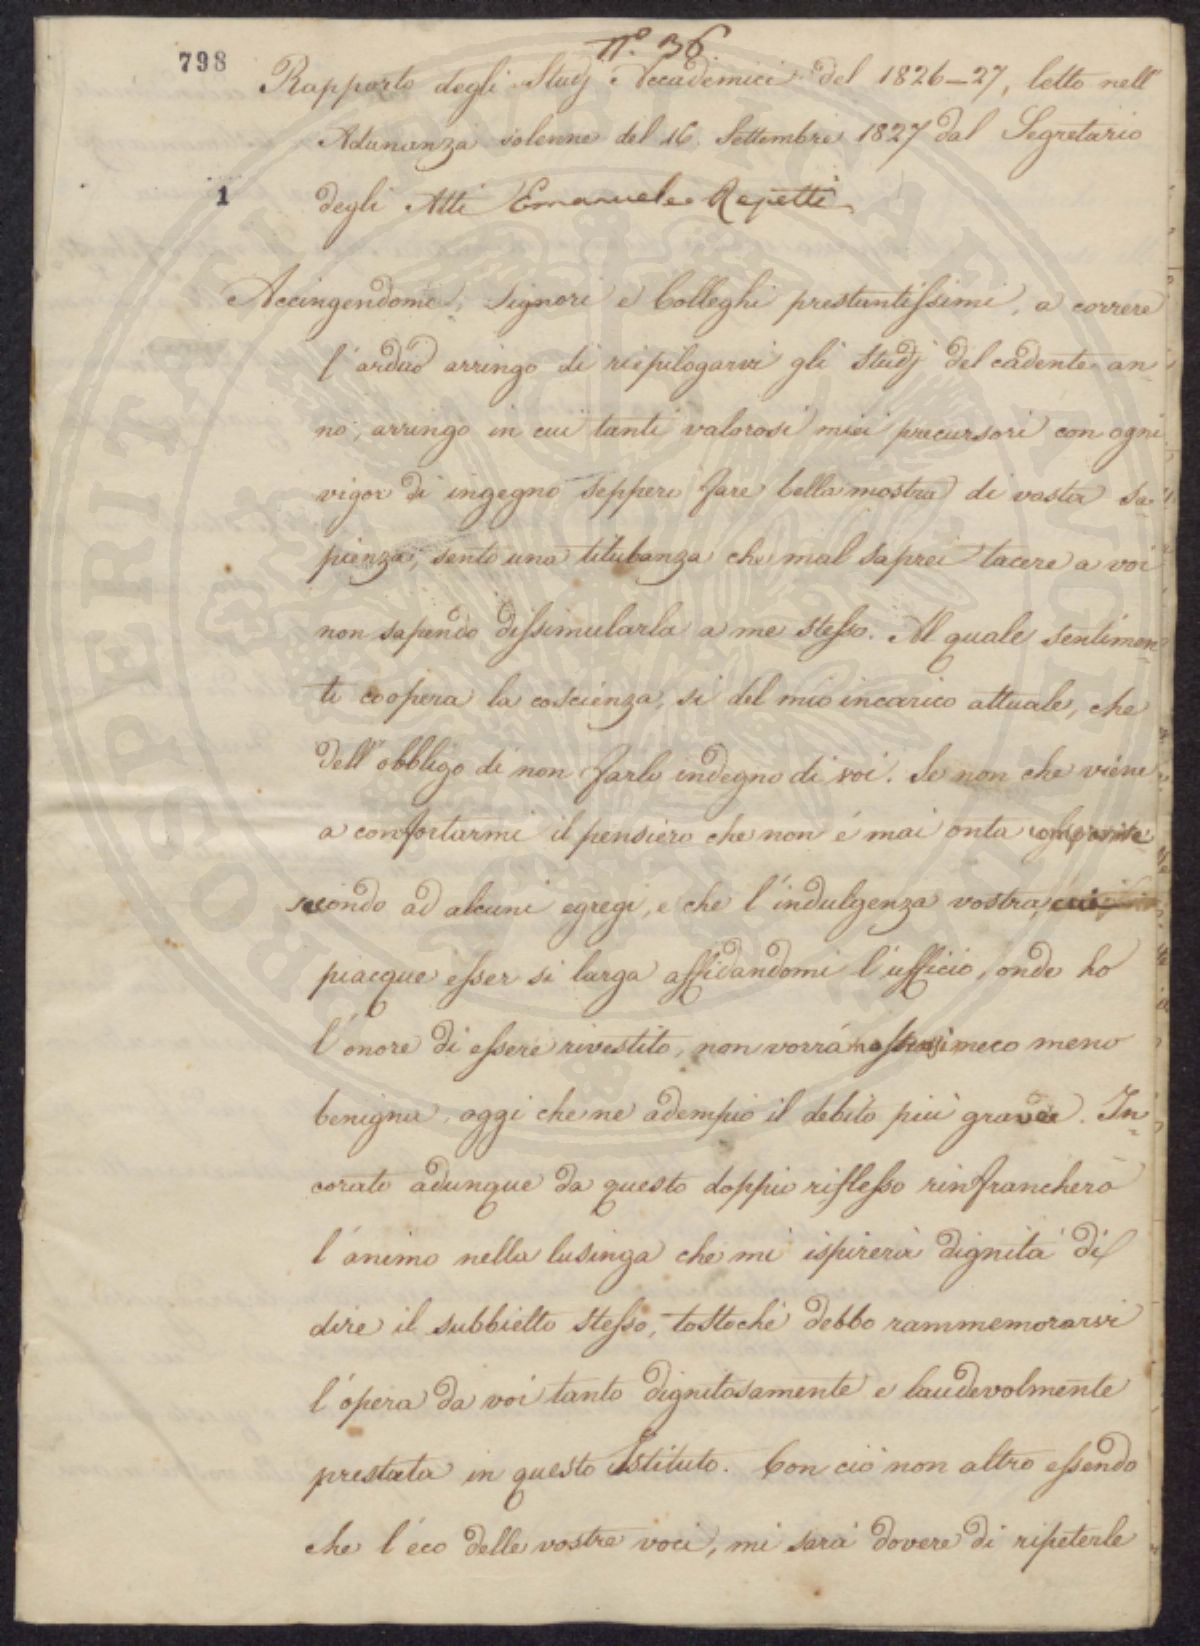 n.° 36
798
Rapporto degli Studj Accademici del 1826-27, letto nell'
Adunanza solenne del 16. Settembre 1827 dal Segretario
1
degli Atti Emanuele Repetti
Accingendomi, Signori e Colleghi prestantissimi, a correre
l'arduo arringo di riepilogarvi gli Studj del cadente an=
no, arringo in cui tanti valorosi miei precursori con ogni
vigor di ingegno seppero fare bella mostra di vasta sa=
pienza, sento una titubanza che mal saprei tacere a voi
non sapendo dissimularla a me stesso. Al quale sentimen=
to coopera la coscienza, si del mio incarico attuale, che
dell'obbligo di non farlo indegno di voi. Se non che viene
a confortarmi il pensiero che non é mai onta
secondo ad alcuni egregi, e che l'indulgenza vostra, cui
piacque esser si larga affidandomi l'ufficio, onde ho
l'onore di essere rivestito, non vorrá meco meno
benigna, oggi che ne adempio il debito piú grave. In=
corato adunque da questo doppio riflesso rinfrancheró
l'animo nella lusinga che mi ispirerá dignitá di
dire il subbietto stesso, tostoché debbo rammemorarvi
l'opera da voi tanto dignitosamente e laudevolmente
prestata in questo Istituto. Con ció non altro essendo
che l'éco delle vostre voci, mi sará dovere di ripeterle
PROSPERITATI PUBLICAE AUGENDAE